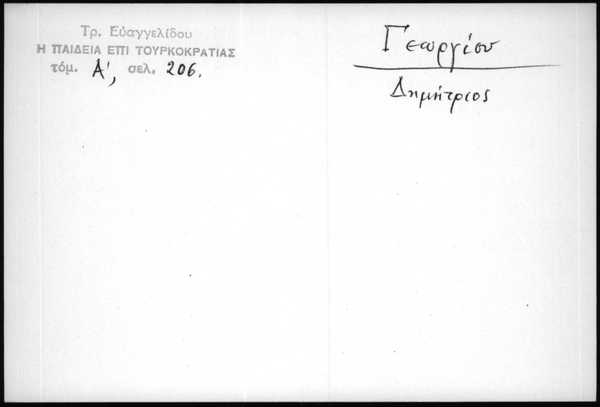 Τρ. Εὐαγγελίδου
Η ΠΑΙΔΕΙΑ ΕΠΙ ΤΟΥΡΚΟΚΡΑΤΙΑΣ
τόμ. Α', σελ. 206.
Γεωργίου
Δημήτριος